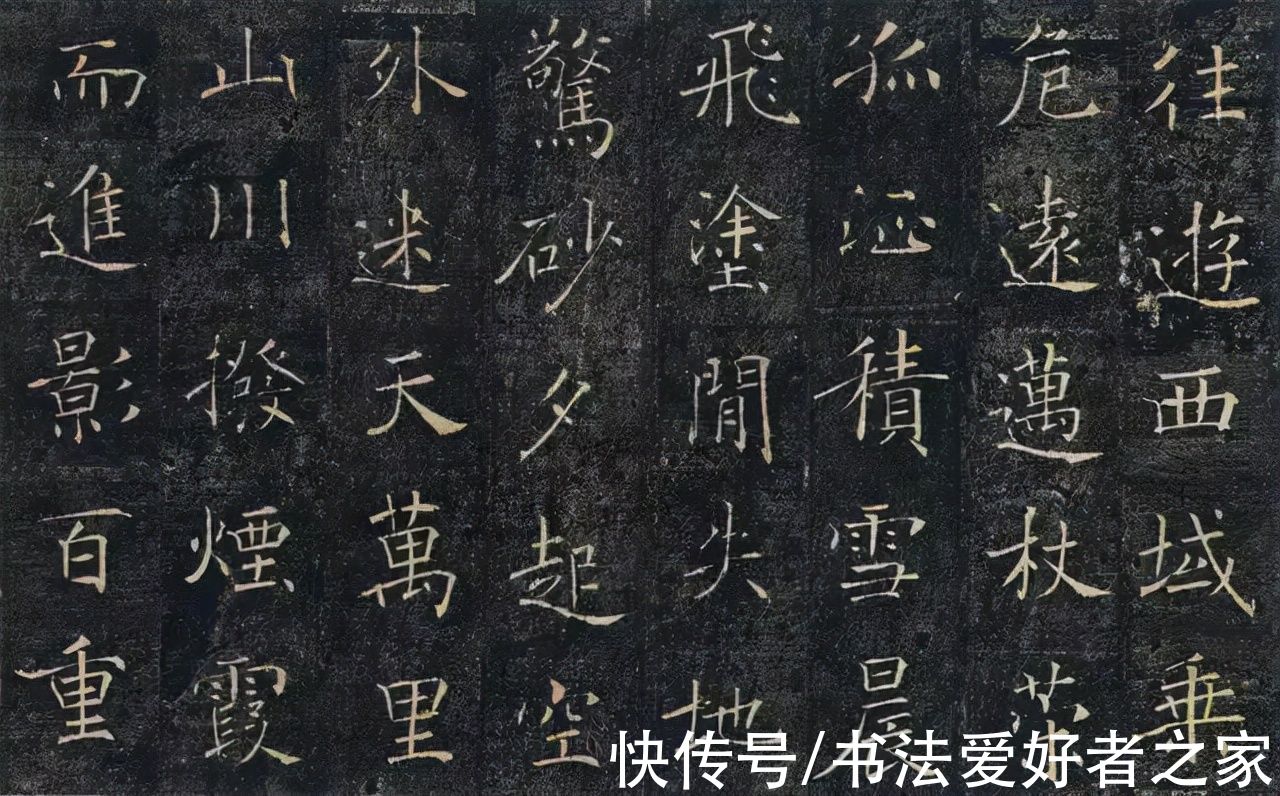 往遊西域乘
危遠邁杖策
孤征積雪晨
飛塗閒失地
驚砂夕起空
外迷天萬里
山川撥煙霞
而進影百重
快传号/书法爱好者之家